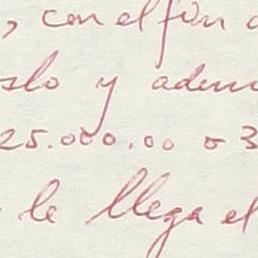 , con el fin
slo y adem
25.000.00 o 3
le llega el